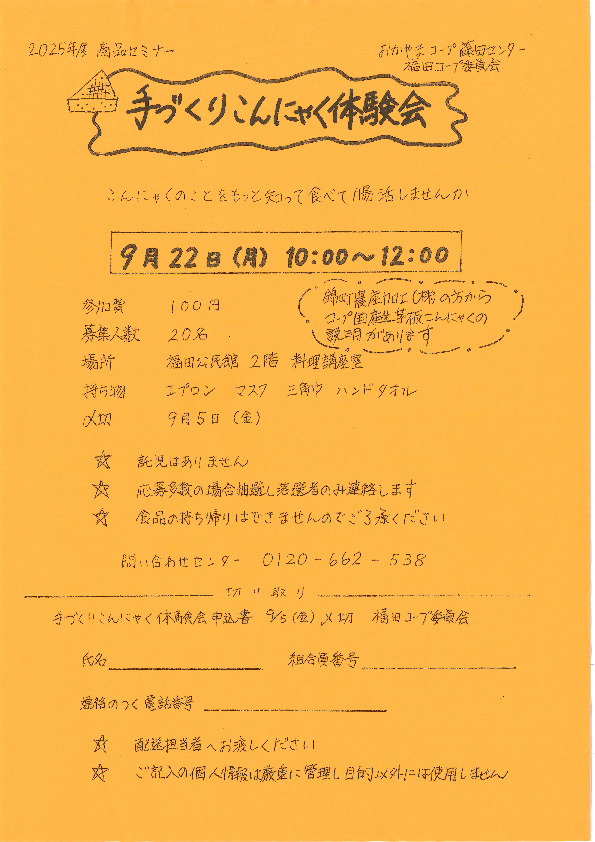 2025年度 商品セミナー
おかやまコープ 藤田センター
福田コープ委員会
手づくりこんにゃく体験会
こんにゃくのことをもっと知って食べて腸活しませんか
9月22日(月) 10:00〜12:00
参加費 100円
募集人数 20名
場所 福田公民館 2階 料理講座室
持ち物 エプロン マスク 三角巾 ハンドタオル
〆切 9月5日(金)
農産加工(株)の方から
コープ国産生芋板こんにゃくの
説明があります
☆ 託児はありません
☆ 応募多数の場合抽選し落選者のみ連絡します
☆ 食品の持ち帰りはできませんのでご了承ください
問い合わせセンター 0120-662-538
切り取り
手づくりこんにゃく体験会申込書 9/5(金)〆切 福田コープ委員会
氏名 組合員番号
連絡のつく電話番号
☆ 配送担当者へお渡しください
☆ ご記入の個人情報は厳重に管理し目的以外には使用しません